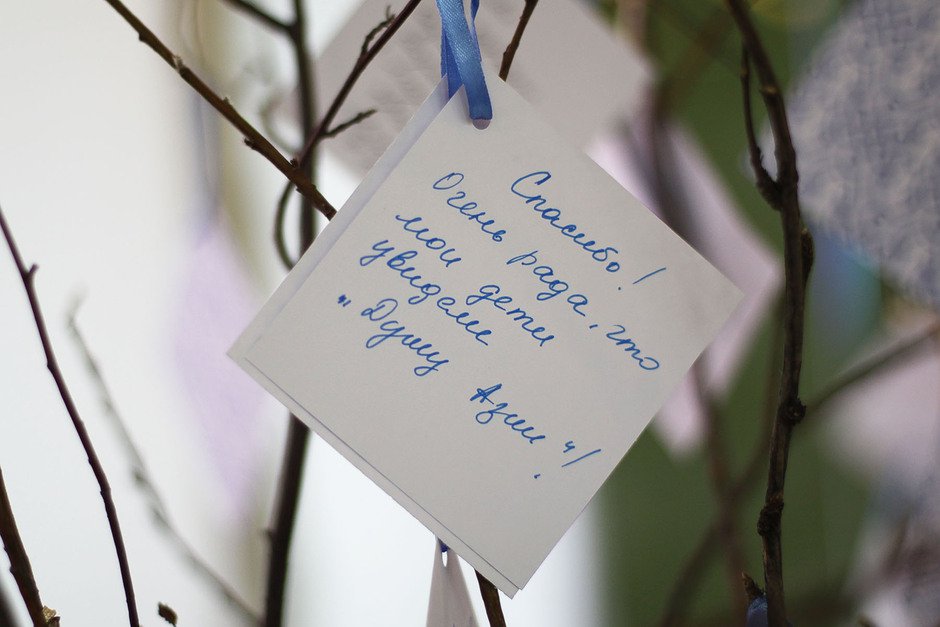 Спасибо!
Очень рада, что
мои дети
увидели
"Душу Азии"!